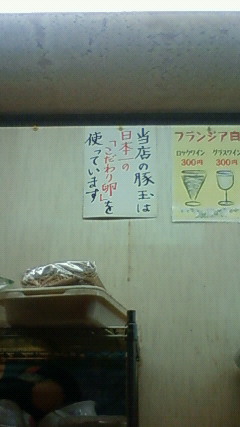 当店の豚玉は
日本一の
「こだわり卵」を
使っています
フランジア白
ロックワイン
300円
グラスワイン
300円